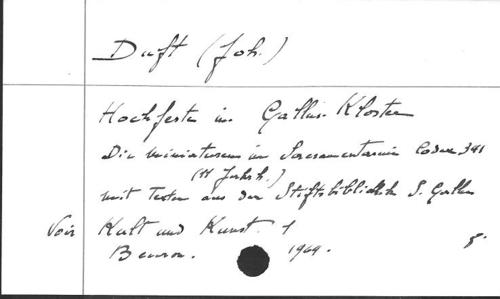 Duft (Joh.)
Hochfeste im Gallus-Kloster
Die Miniaturen im Sacramentarium Codex 341
(11 Jahrh.)
mit Texten aus der Stiftsbibliothek S. Gallen
Voir Kult und Kunst. 1
Beuron. 1949.